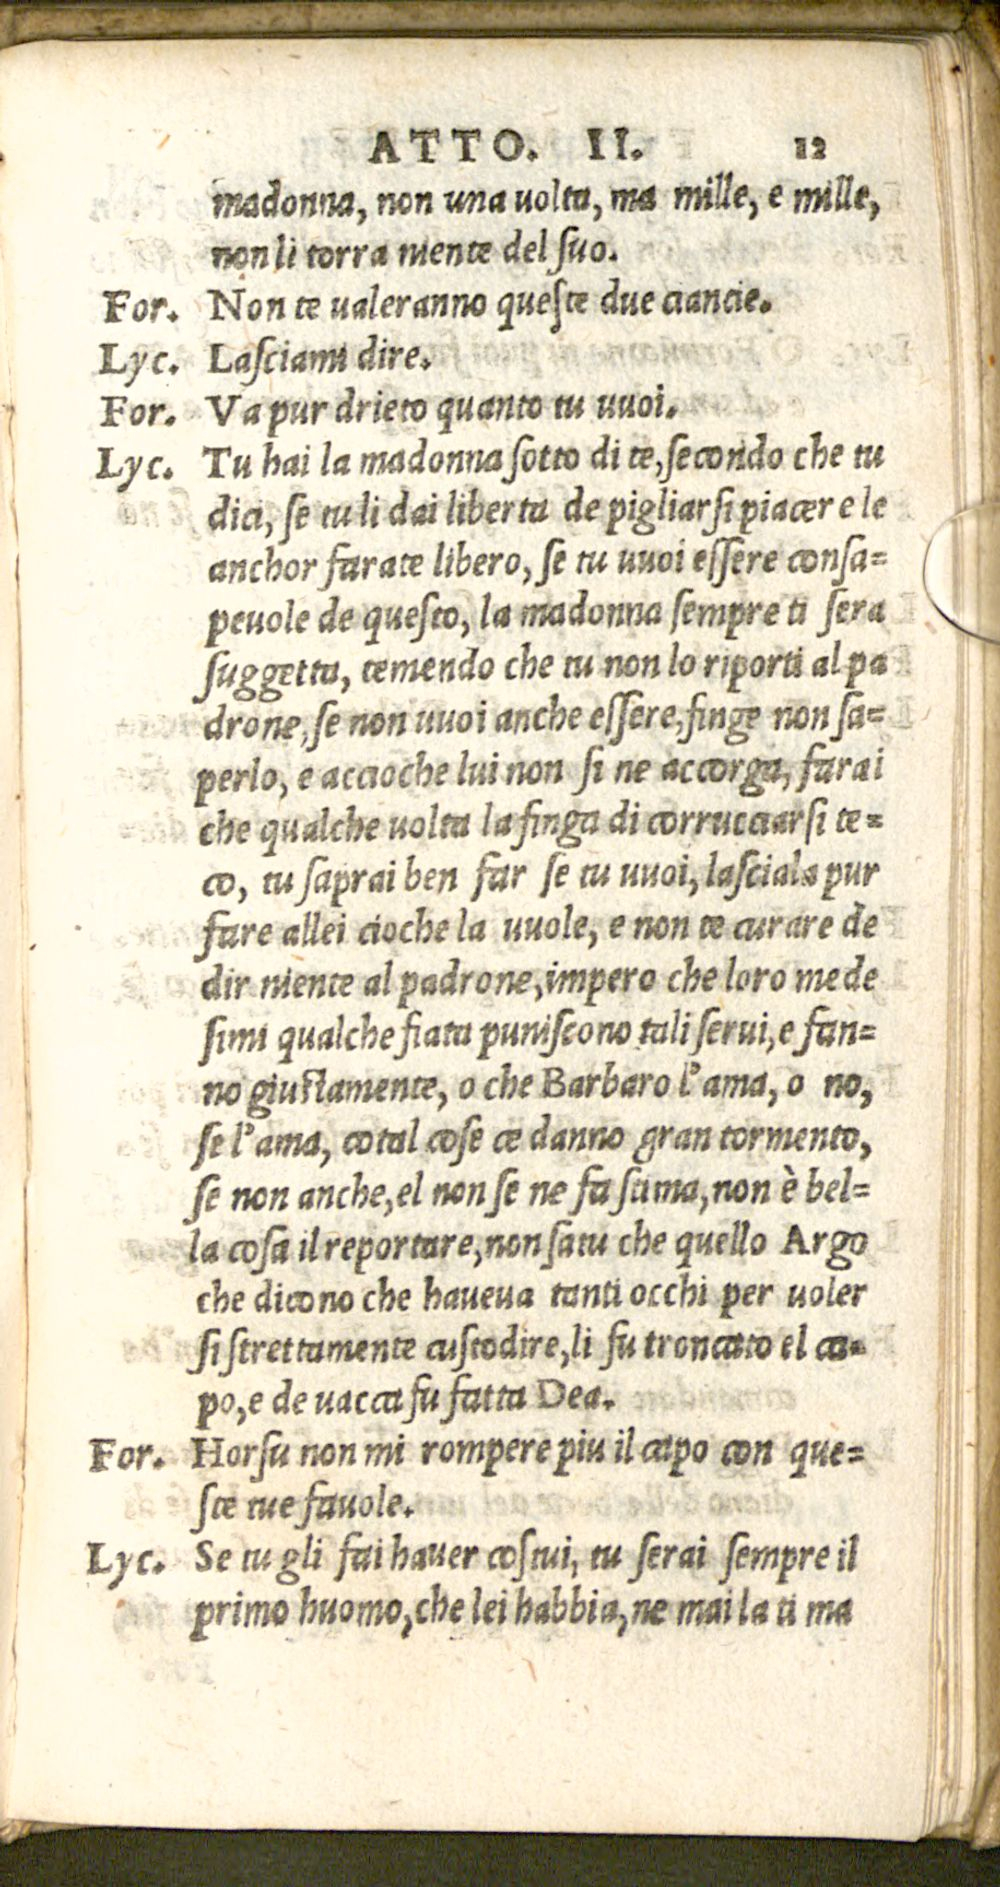 ATTO. II. 12
madonna, non una uolta, ma mille, e mille,
non li torra niente del ſuo.
For. Non te ualeranno queſte due ciancie.
Lyc. Laſciami dire.
For. Va pur drieto quanto tu uuoi.
Lyc. Tu hai la madonna ſotto di te, ſecondo che tu
dici, ſe tu li dai liberta de pigliarſi piacer e le
anchor farate libero, ſe tu uuoi eſſere conſa=
peuole de queſto, la madonna ſempre ti ſera
ſuggetta, temendo che tu non lo riporti al pa
drone, ſe non uuoi anche eſſere, finge non ſa=
perlo, e accioche lui non ſi ne accorga, farai
che qualche uolta la finga di corrucciarſi te=
co, tu ſaprai ben far ſe tu uuoi, laſciala pur
fare allei cioche la uuole, e non te curare de
dir niente al padrone, impero che loro mede
ſimi qualche fiata puniſcono tali ſerui, e fan=
no giuſtamente, o che Barbaro l'ama, o no,
ſe l'ama, cotal coſe ce danno gran tormento,
ſe non anche, el non ſe ne fa ſtima, non è bel=
la coſa il reportare, non ſatu che quello Argo
che dicono che haueua tanti occhi per uoler
ſi ſtrettamente cuſtodire, li fu troncatto el ca=
po, e de uacca fu fatta Dea.
For. Horſu non mi rompere piu il capo con que=
ſte tue fauole.
Lyc. Se tu gli fai hauer coſtui, tu ſerai ſempre il
primo huomo, che lei habbia, ne mai la ti ma